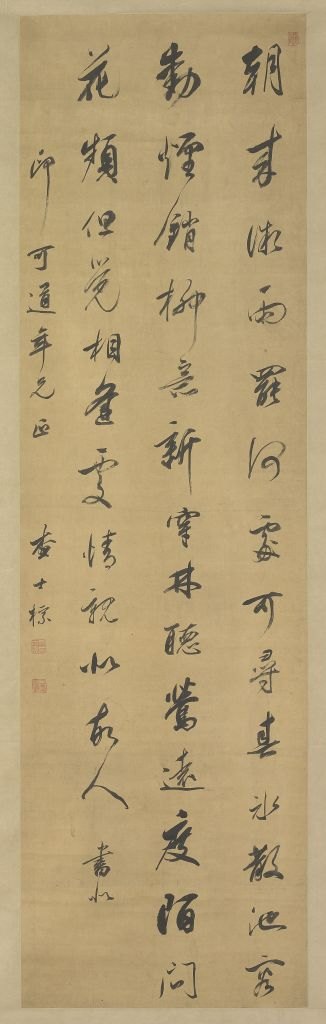 朝來微雨罷何處可尋真氷散池容
動煙銷柳意新穿林聽鶯遠度陌問
花頻但覺相逢處情親似故人 書似
印可道年兄正 查士標